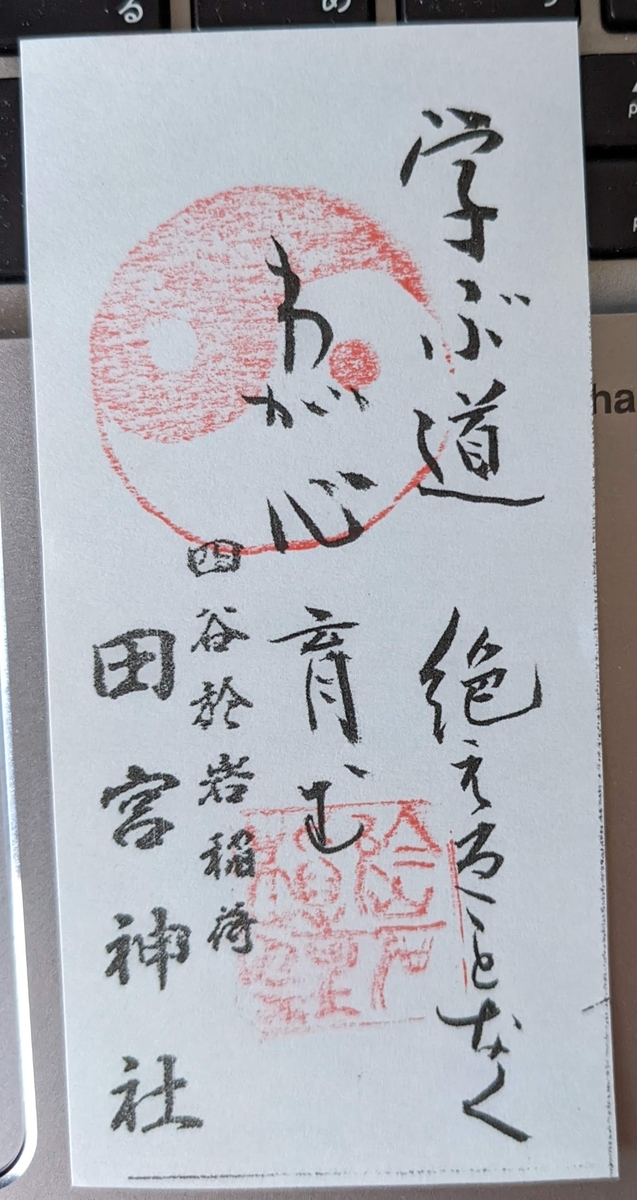 学ぶ道 絶えることなく
わが心 育む
四谷於岩稲荷
田宮神社
る
め
つ
ha